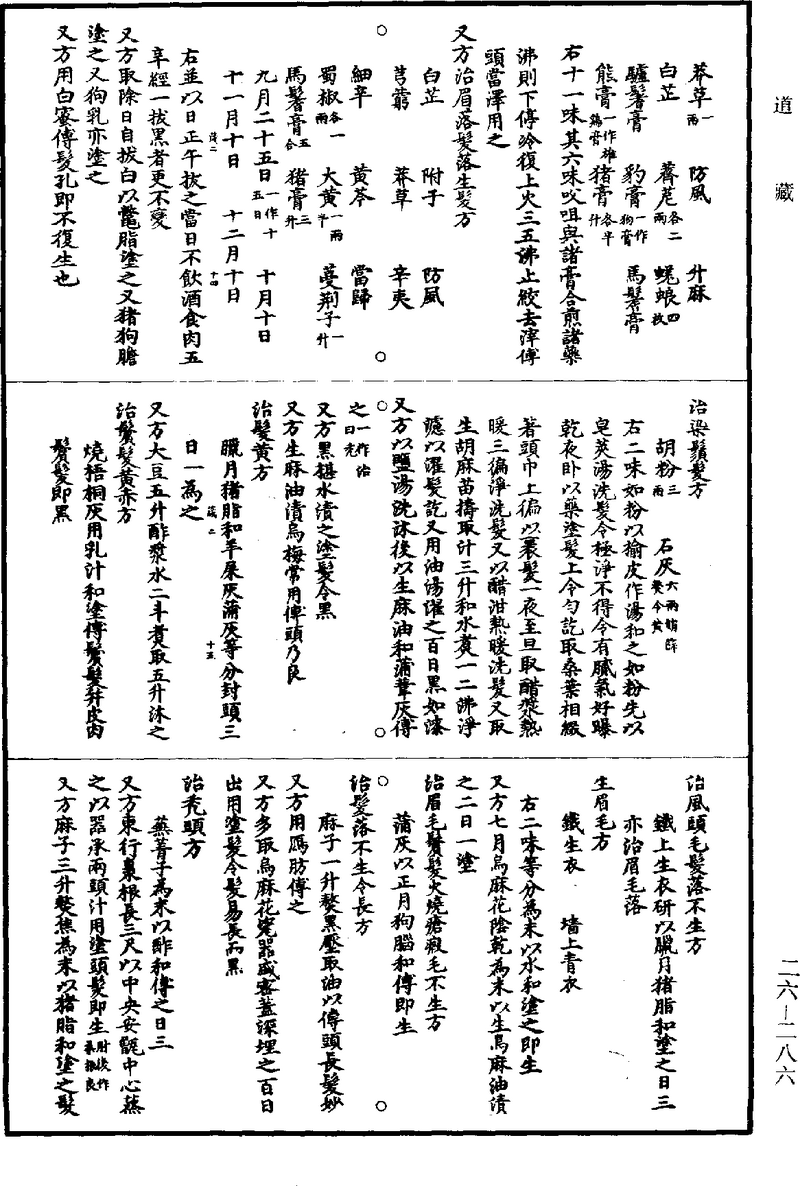 道藏
莽草一兩　防風　升麻
白芷　薺苨各二兩　蜣蜋四枚
驢鬐膏　豹膏一作狗膏　馬鬐膏
熊膏一作雄雞膏　猪膏各半升
右十一味其六味㕮咀與諸膏合煎諸藥
沸則下停冷復上火三五沸止絞去滓傅
頭當澤用之
又方治眉落髮落生髮方
白芷　附子　防風
芎藭　莽草　辛夷
細辛　黃芩　當歸
蜀椒各一兩　大黃一兩半　蔓荆子一升
馬鬐膏五合　猪膏三升
九月二十五日一作十五日　十月十日
十一月十日　十二月十日
右並以日正午拔之當日不飲酒食肉五
辛經一拔黑者更不變
又方取除日自拔白以鼈脂塗之又猪狗膽
塗之又狗乳亦塗之
又方用白蜜傅髮孔即不復生也
治染鬚髮方
胡粉三兩　石灰六兩
右二味如粉以榆皮作湯和之如粉先以
皂莢湯洗髮令極淨不得令有膩氣好曝
乾夜卧以藥塗髮上令勻訖取桑葉相綴
著頭巾上徧以裹髮一夜至旦取醋漿熱
暖三徧淨洗髮又以醋泔熱暖洗髮又取
生胡麻苗擣取汁三升和水煑一二沸淨
濾以濯髮訖又用油湯濯之百日黑如漆
又方以鹽湯洗沐後以生麻油和蒲葦灰傅
之一作治白禿
又方黑椹水漬之塗髮令黑
又方生麻油漬烏梅常用傅頭乃良
治髮黃方
臘月猪脂和羊屎灰蒲灰等分封頭三
日一為之
又方大豆五升酢漿水二斗煑取五升沐之
治鬢髮黃赤方
燒梧桐灰用乳汁和塗傅鬢髮并皮肉
鬢髮即黑
治風頭毛髮落不生方
鐵上生衣研以臘月猪脂和塗之日三
亦治眉毛落
生眉毛方
鐵生衣　墻上青衣
右二味等分為末以水和塗之即生
又方七月烏麻花陰乾為末以生烏麻油漬
之二日一塗
治眉毛鬢髮火燒瘡瘢毛不生方
蒲灰以正月狗腦和傅即生
治髮落不生令長方
麻子一升熬黑壓取油以傅頭長髮妙
又方用鴈肪傅之
又方多取烏麻花甆器盛密蓋深埋之百日
出用塗髮令髮易長而黑
治禿頭方
蕪菁子為末以酢和傅之日三
又方東行棗根長三尺以中央安甑中心蒸
之以器承兩頭汁用塗頭髮即生肘後作桑根良
又方麻子三升熬焦為末以猪脂和塗之髮
二六—二八六